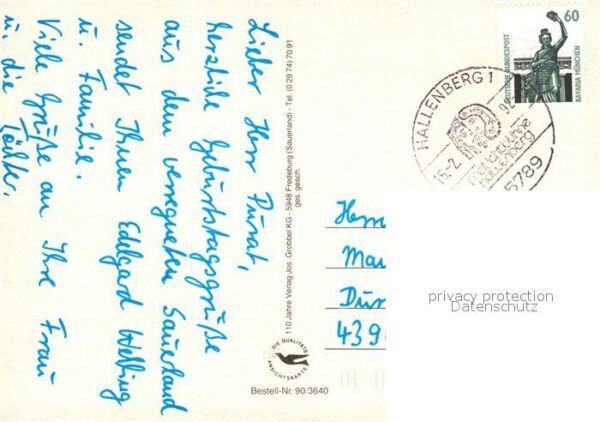 Lieber Herr Purat,
herzliche Geburtstagsgrüße
aus dem verregneten Sauerland
sendet Ihnen Edelgard Welbing
u. Familie.
Viele Grüße an Ihre Frau
u. die
110 Jahre Verlag Jos. Grobbel KG - 5948 Fredeburg (Sauerland) - Tel. (0 29 74) 70 91
ges. gesch.
DIE QUALITÄTS
ANSICHTSKARTE
Bestell-Nr. 90/3640
60
DEUTSCHE BUNDESPOST
BAVARIA MÜNCHEN
HALLENBERG 1
15.-2.
92
Freilichtbühne
Hallenberg
5789
Herrn
439
privacy protection
Datenschutz